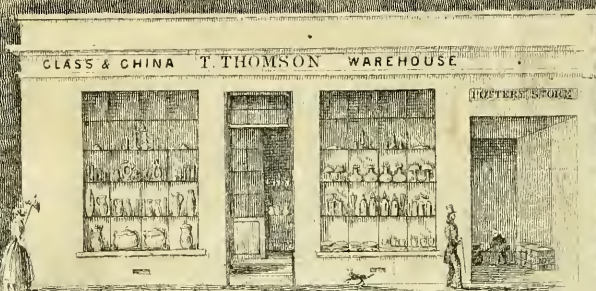 GLASS & CHINA T. THOMSON WAREHOUSE
POTTERY STORE